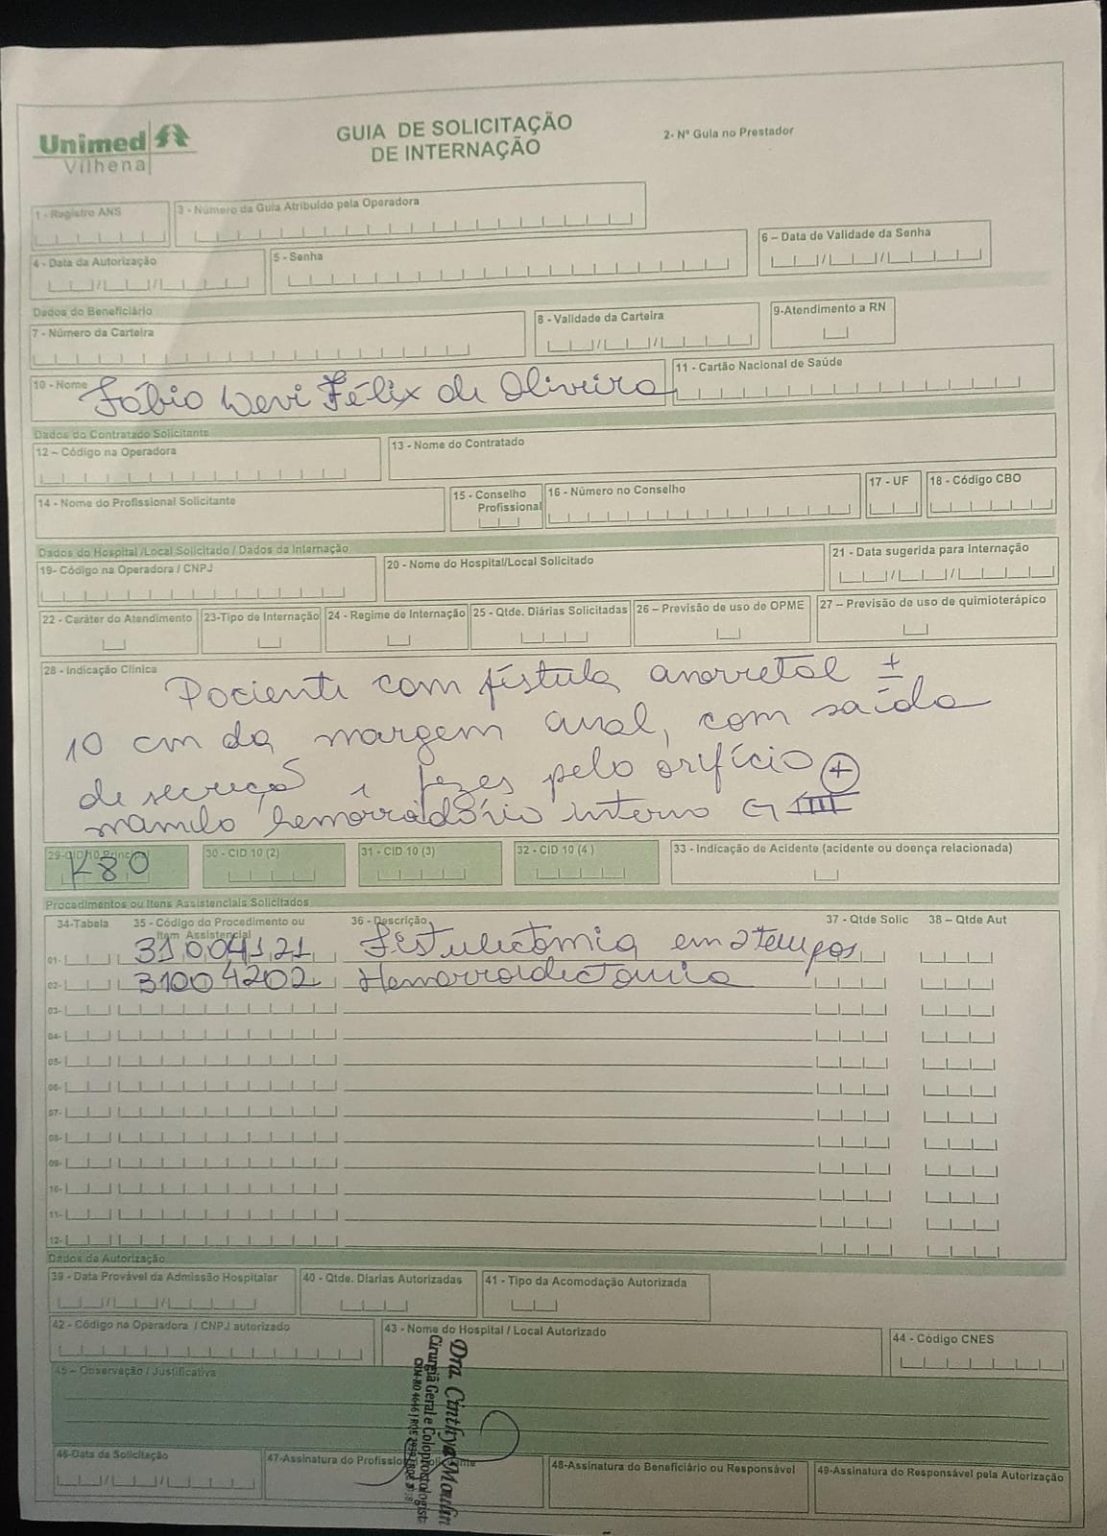 Unimed
Vilhena
GUIA DE SOLICITAÇÃO
DE INTERNAÇÃO
2- Nº Guia no Prestador
1 - Registro ANS
3 - Número da Guia Atribuído pela Operadora
4 - Data da Autorização
5 - Senha
6 – Data de Validade da Senha
Dados do Beneficiário
7 - Número da Carteira
8 - Validade da Carteira
9-Atendimento a RN
10 - Nome Fábio Devi Félix de Oliveira
11 - Cartão Nacional de Saúde
Dados do Contratado Solicitante
12 – Código na Operadora
13 - Nome do Contratado
14 - Nome do Profissional Solicitante
15 - Conselho Profissional
16 - Número no Conselho
17 - UF
18 - Código CBO
Dados do Hospital /Local Solicitado / Dados da Internação
19- Código na Operadora / CNPJ
20 - Nome do Hospital/Local Solicitado
21 - Data sugerida para Internação
22 - Caráter do Atendimento
23-Tipo de Internação
24 - Regime de Internação
25 - Qtde. Diárias Solicitadas
26 – Previsão de uso de OPME
27 – Previsão de uso de quimioterápico
28 - Indicação Clínica
Paciente com fístula anorretal ±
10 cm da margem anal, com saída
de secreção e fezes pelo orifício (+)
mamilo hemorroidário interno G III
29-CID 10 Principal K80
30 - CID 10 (2)
31 - CID 10 (3)
32 - CID 10 (4)
33 - Indicação de Acidente (acidente ou doença relacionada)
Procedimentos ou Itens Assistenciais Solicitados
34-Tabela
35 - Código do Procedimento ou Item Assistencial
36 - Descrição
37 - Qtde Solic
38 – Qtde Aut
01- 31004121 Fistulectomia em 2 tempos
02- 31004202 Hemorroidectomia
03-
04-
05-
06-
07-
08-
09-
10-
11-
12-
Dados da Autorização
39 - Data Provável da Admissão Hospitalar
40 - Qtde. Diarias Autorizadas
41 - Tipo da Acomodação Autorizada
42 - Código na Operadora / CNPJ autorizado
43 - Nome do Hospital / Local Autorizado
44 - Código CNES
45 – Observação / Justificativa
46-Data da Solicitação
47-Assinatura do Profissional Solicitante
48-Assinatura do Beneficiário ou Responsável
49-Assinatura do Responsável pela Autorização
Dra. Cinthya Moulin
Cirurgiã Geral e Coloproctologista
CRM-RO 4646